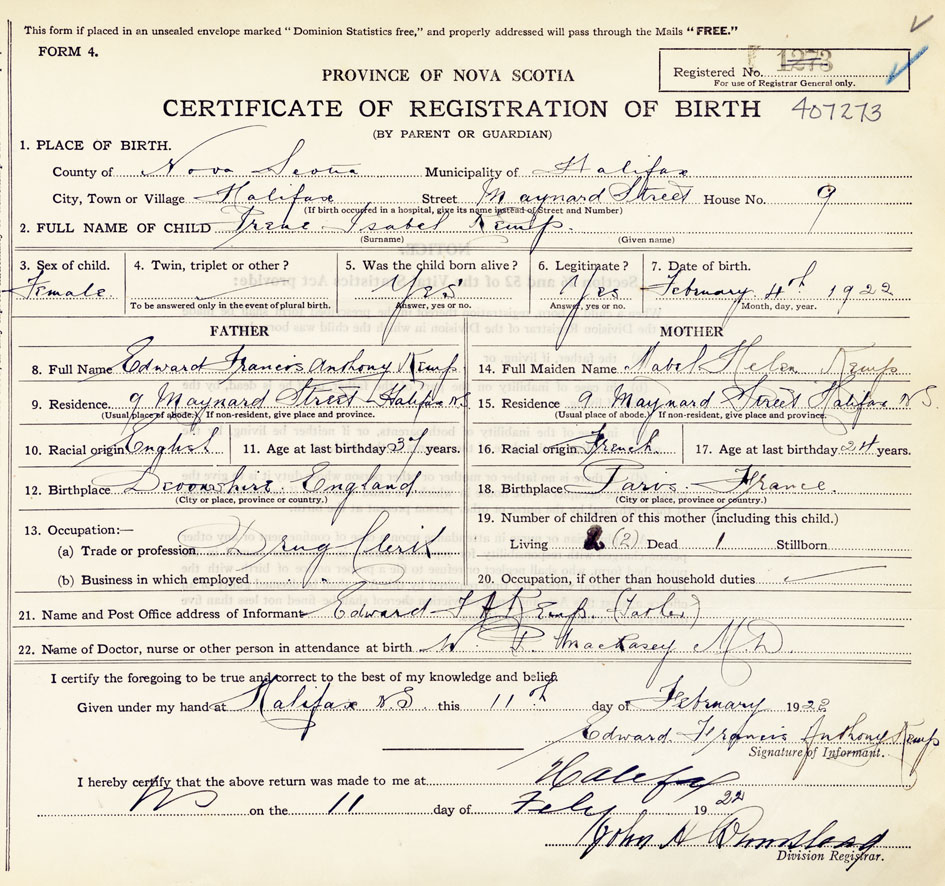 This form if placed in an unsealed envelope marked "Dominion Statistics free," and properly addressed will pass through the Mails "FREE."
FORM 4.
Registered No. 1273
For use of Registrar General only.
PROVINCE OF NOVA SCOTIA
CERTIFICATE OF REGISTRATION OF BIRTH 407273
(BY PARENT OR GUARDIAN)
1. PLACE OF BIRTH.
County of Nova Scotia Municipality of Halifax
City, Town or Village Halifax Street Maynard Street House No. 9
(If birth occurred in a hospital, give its name instead of Street and Number)
2. FULL NAME OF CHILD Irene Isabel Kemp.
(Surname) (Given name)
3. Sex of child. 4. Twin, triplet or other? 5. Was the child born alive? 6. Legitimate? 7. Date of birth.
Female Yes Yes February 4th 1922
To be answered only in the event of plural birth. Answer, yes or no. Answer, yes or no. Month, day, year.
FATHER MOTHER
8. Full Name Edward Francis Anthony Kemp 14. Full Maiden Name Mabel Helen Kemp
9. Residence 9 Maynard Street Halifax N.S. 15. Residence 9 Maynard Street Halifax N.S.
(Usual place of abode. If non-resident, give place and province. (Usual place of abode.) If non-resident, give place and province.
10. Racial origin English 11. Age at last birthday 37 years. 16. Racial origin French 17. Age at last birthday 24 years.
12. Birthplace Devonshire England 18. Birthplace Paris France.
(City or place, province or country.) (City or place, province or country.)
13. Occupation:— 19. Number of children of this mother (including this child.)
(a) Trade or profession Drug Clerk Living 2 (2) Dead 1 Stillborn
(b) Business in which employed " " 20. Occupation, if other than household duties
21. Name and Post Office address of Informant Edward F A Kemp.
22. Name of Doctor, nurse or other person in attendance at birth W. P. MacKasey M.D.
I certify the foregoing to be true and correct to the best of my knowledge and belief.
Given under my hand at Halifax N.S. this 11th day of February 1922
Edward Francis Anthony Kemp
Signature of Informant.
I hereby certify that the above return was made to me at Halifax
NS on the 11 day of Feby 1922
John H
Division Registrar.